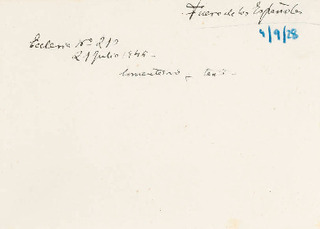 Fuero de los Españoles
4/9/28
Ecclesia Nº 212
21 Julio 1945 -
Comentario -